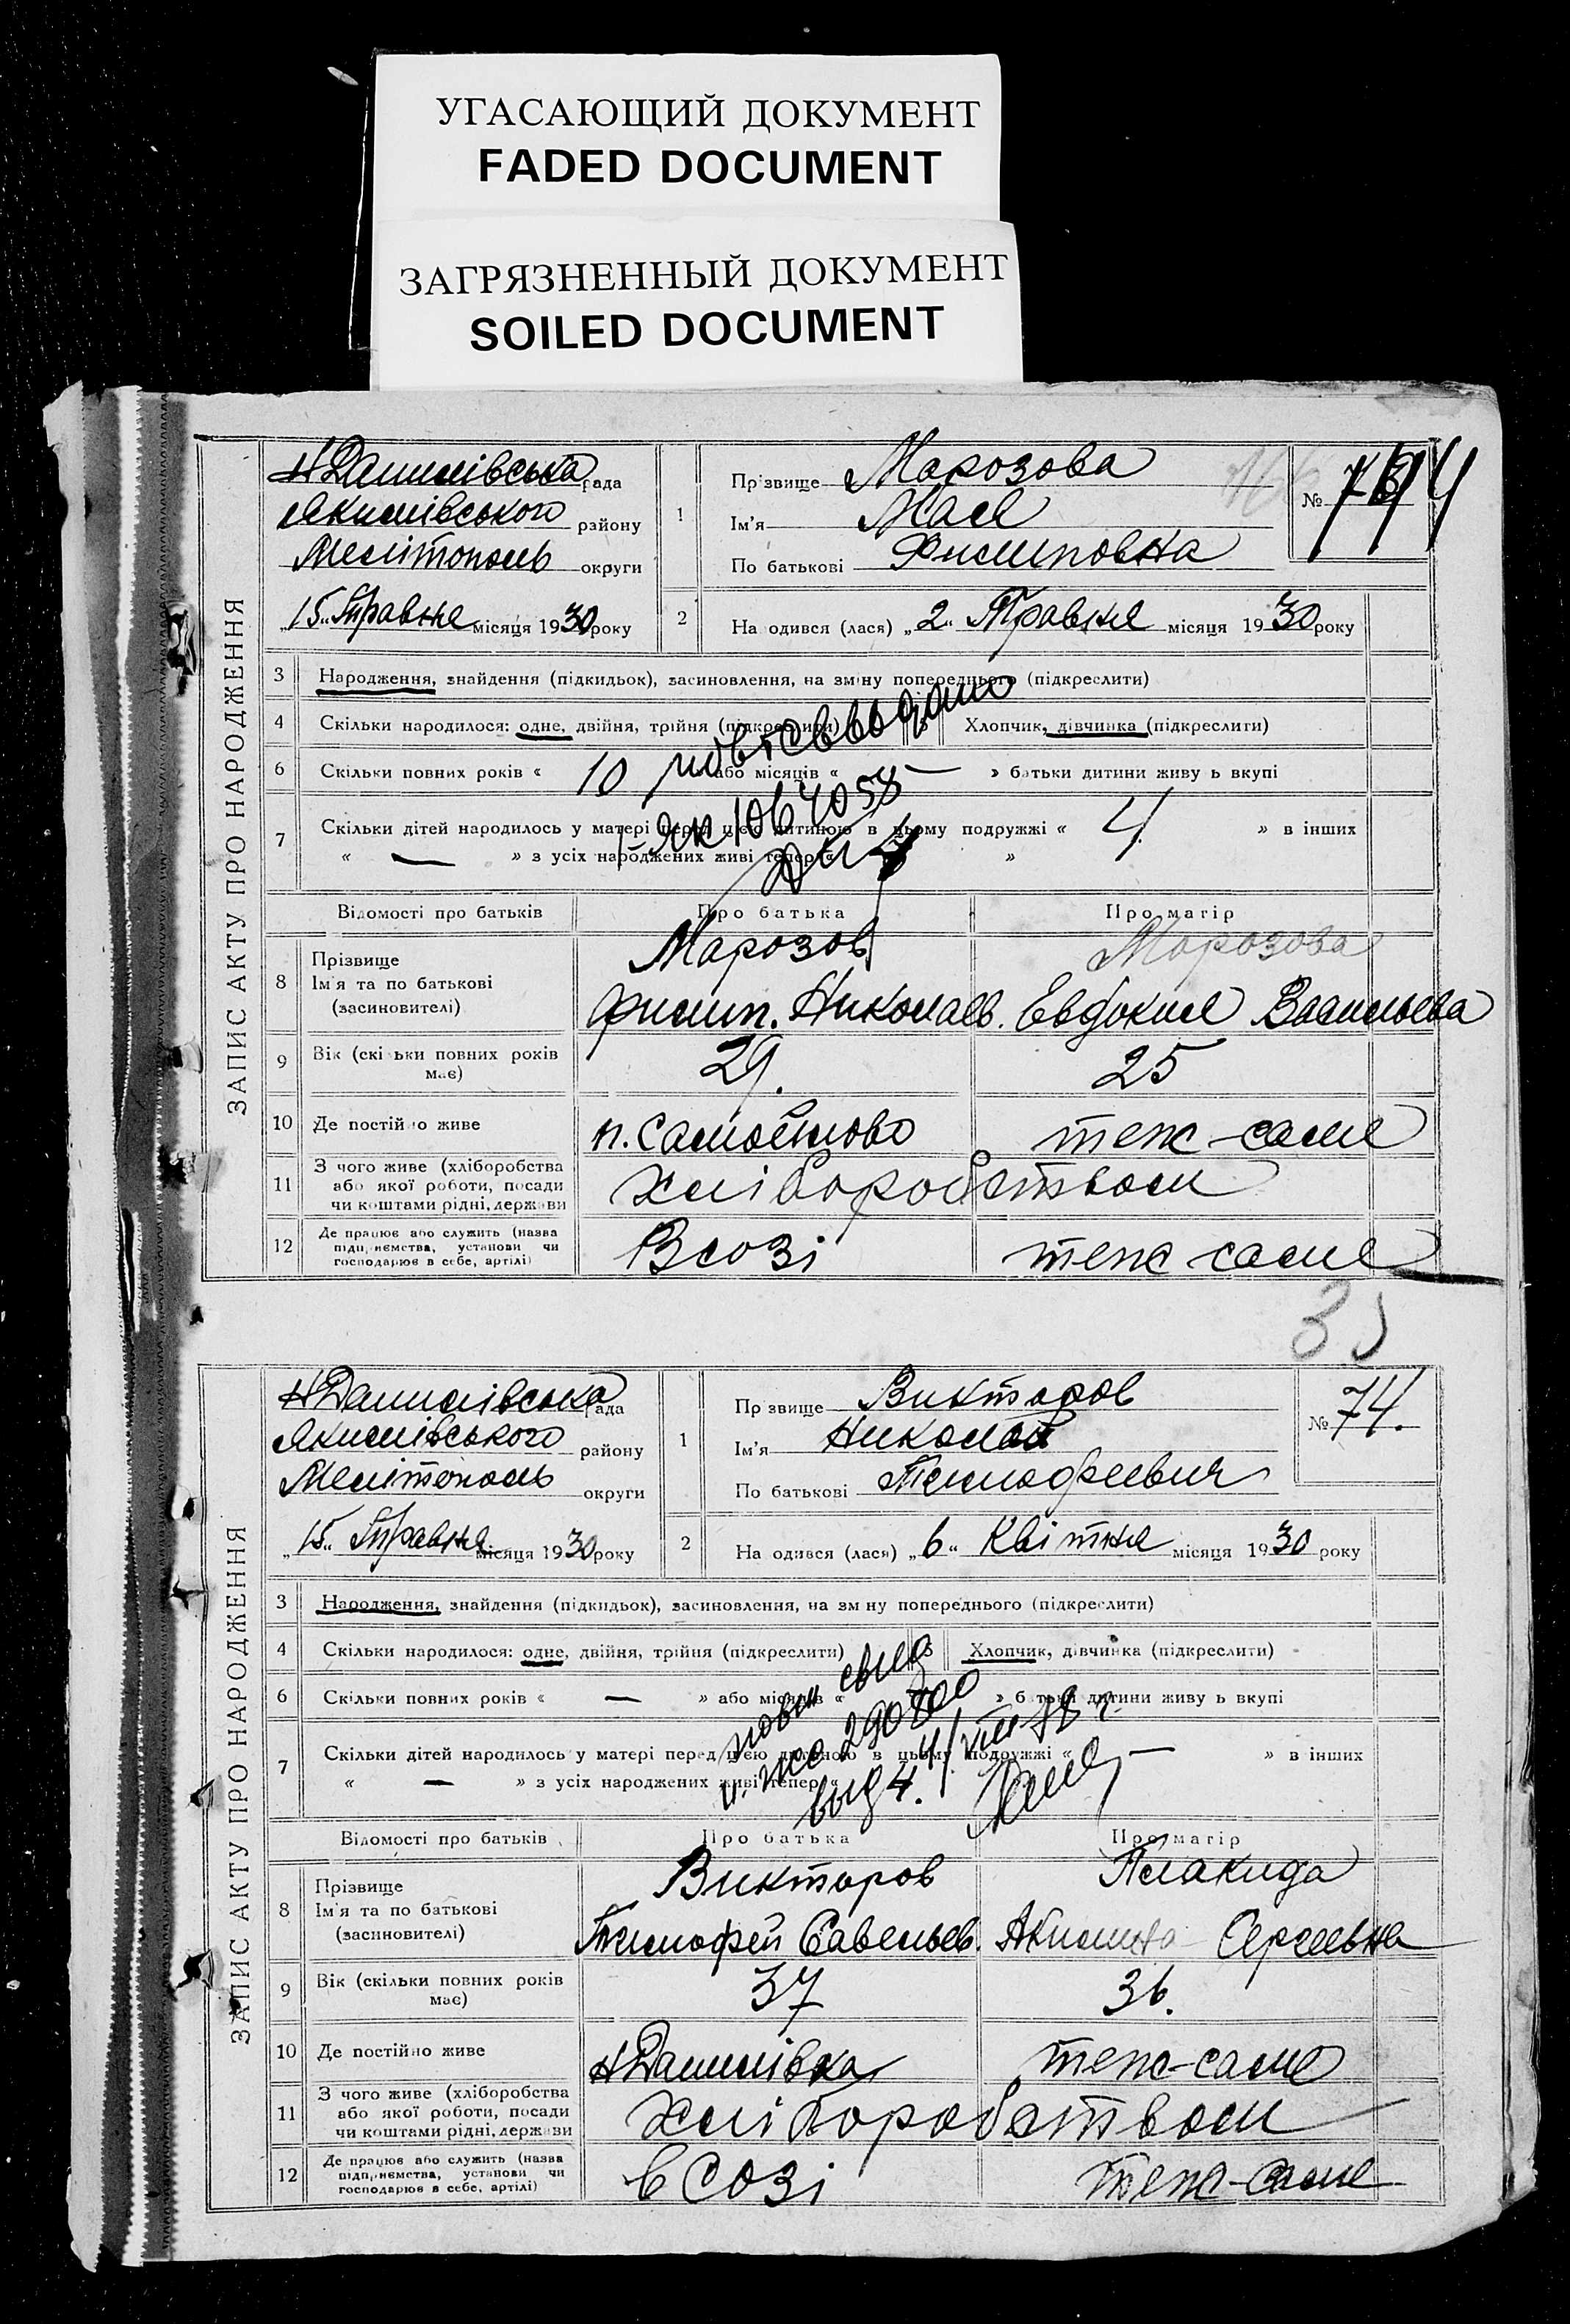 УГАСАЮЩИЙ ДОКУМЕНТ
FADED DOCUMENT
ЗАГРЯЗНЕННЫЙ ДОКУМЕНТ
SOILED DOCUMENT
ЗАПИС АКТУ ПРО НАРОДЖЕННЯ
Н Данилівська рада
Якимівського району
Мелітополь округи
„15" Травня місяця 1930 року
1
Прізвище Марозова
Ім'я Мая
По батькові Филиповна
№
2
Народився (лася) „2" Травня місяця 1930 року
3 Народження, знайдення (підкидьок), засиновлення, на зміну попереднього (підкреслити)
4 Скільки народилося: одне, двійня, трійня (підкреслити) 5 Хлопчик, дівчинка (підкреслити)
6 Скільки повних років « 10 або місяців « — » батьки дитини живуть вкупі
7 Скільки дітей народилось у матері перед цією дитиною в цьому подружжі « 4 » в інших
« — » з усіх народжених живі тепер « 4 »
повт. св. выдано
ЯК 1064058
Відомості про батьків Про батька Про матір
8 Прізвище Марозов Морозова
Ім'я та по батькові
(засиновителі) Филип. Николаев. Евдокия Васильева
9 Вік (скільки повних років має) 29. 25
10 Де постійно живе п. Самойлово теж-саме
11 З чого живе (хліборобства
або якої роботи, посади
чи коштами рідні, держави Хліборобством
12 Де працює або служить (назва
підприємства, установи чи
господарює в себе, артілі) В созі теж саме
ЗАПИС АКТУ ПРО НАРОДЖЕННЯ
Н Данилівська рада
Якимівського району
Мелітополь округи
„15" Травня місяця 1930 року
1
Прізвище Викторов
Ім'я Николай
По батькові Тимофеевич
№ 74.
2
Народився (лася) „6" Квітня місяця 1930 року
3 Народження, знайдення (підкидьок), засиновлення, на зміну попереднього (підкреслити)
4 Скільки народилося: одне, двійня, трійня (підкреслити) 5 Хлопчик, дівчинка (підкреслити)
6 Скільки повних років « — » або місяців « » батьки дитини живуть вкупі
7 Скільки дітей народилось у матері перед цією дитиною в цьому подружжі « — » в інших
« — » з усіх народжених живі тепер «
Відомості про батьків Про батька Про матір
8 Прізвище Викторов Плакида
Ім'я та по батькові
(засиновителі) Тимофей Савельев. Акилина Сергеевна
9 Вік (скільки повних років має) 37 36.
10 Де постійно живе Н Данилівка теж-саме
11 З чого живе (хліборобства
або якої роботи, посади
чи коштами рідні, держави Хліборобством
12 Де працює або служить (назва
підприємства, установи чи
господарює в себе, артілі) в созі теж-саме